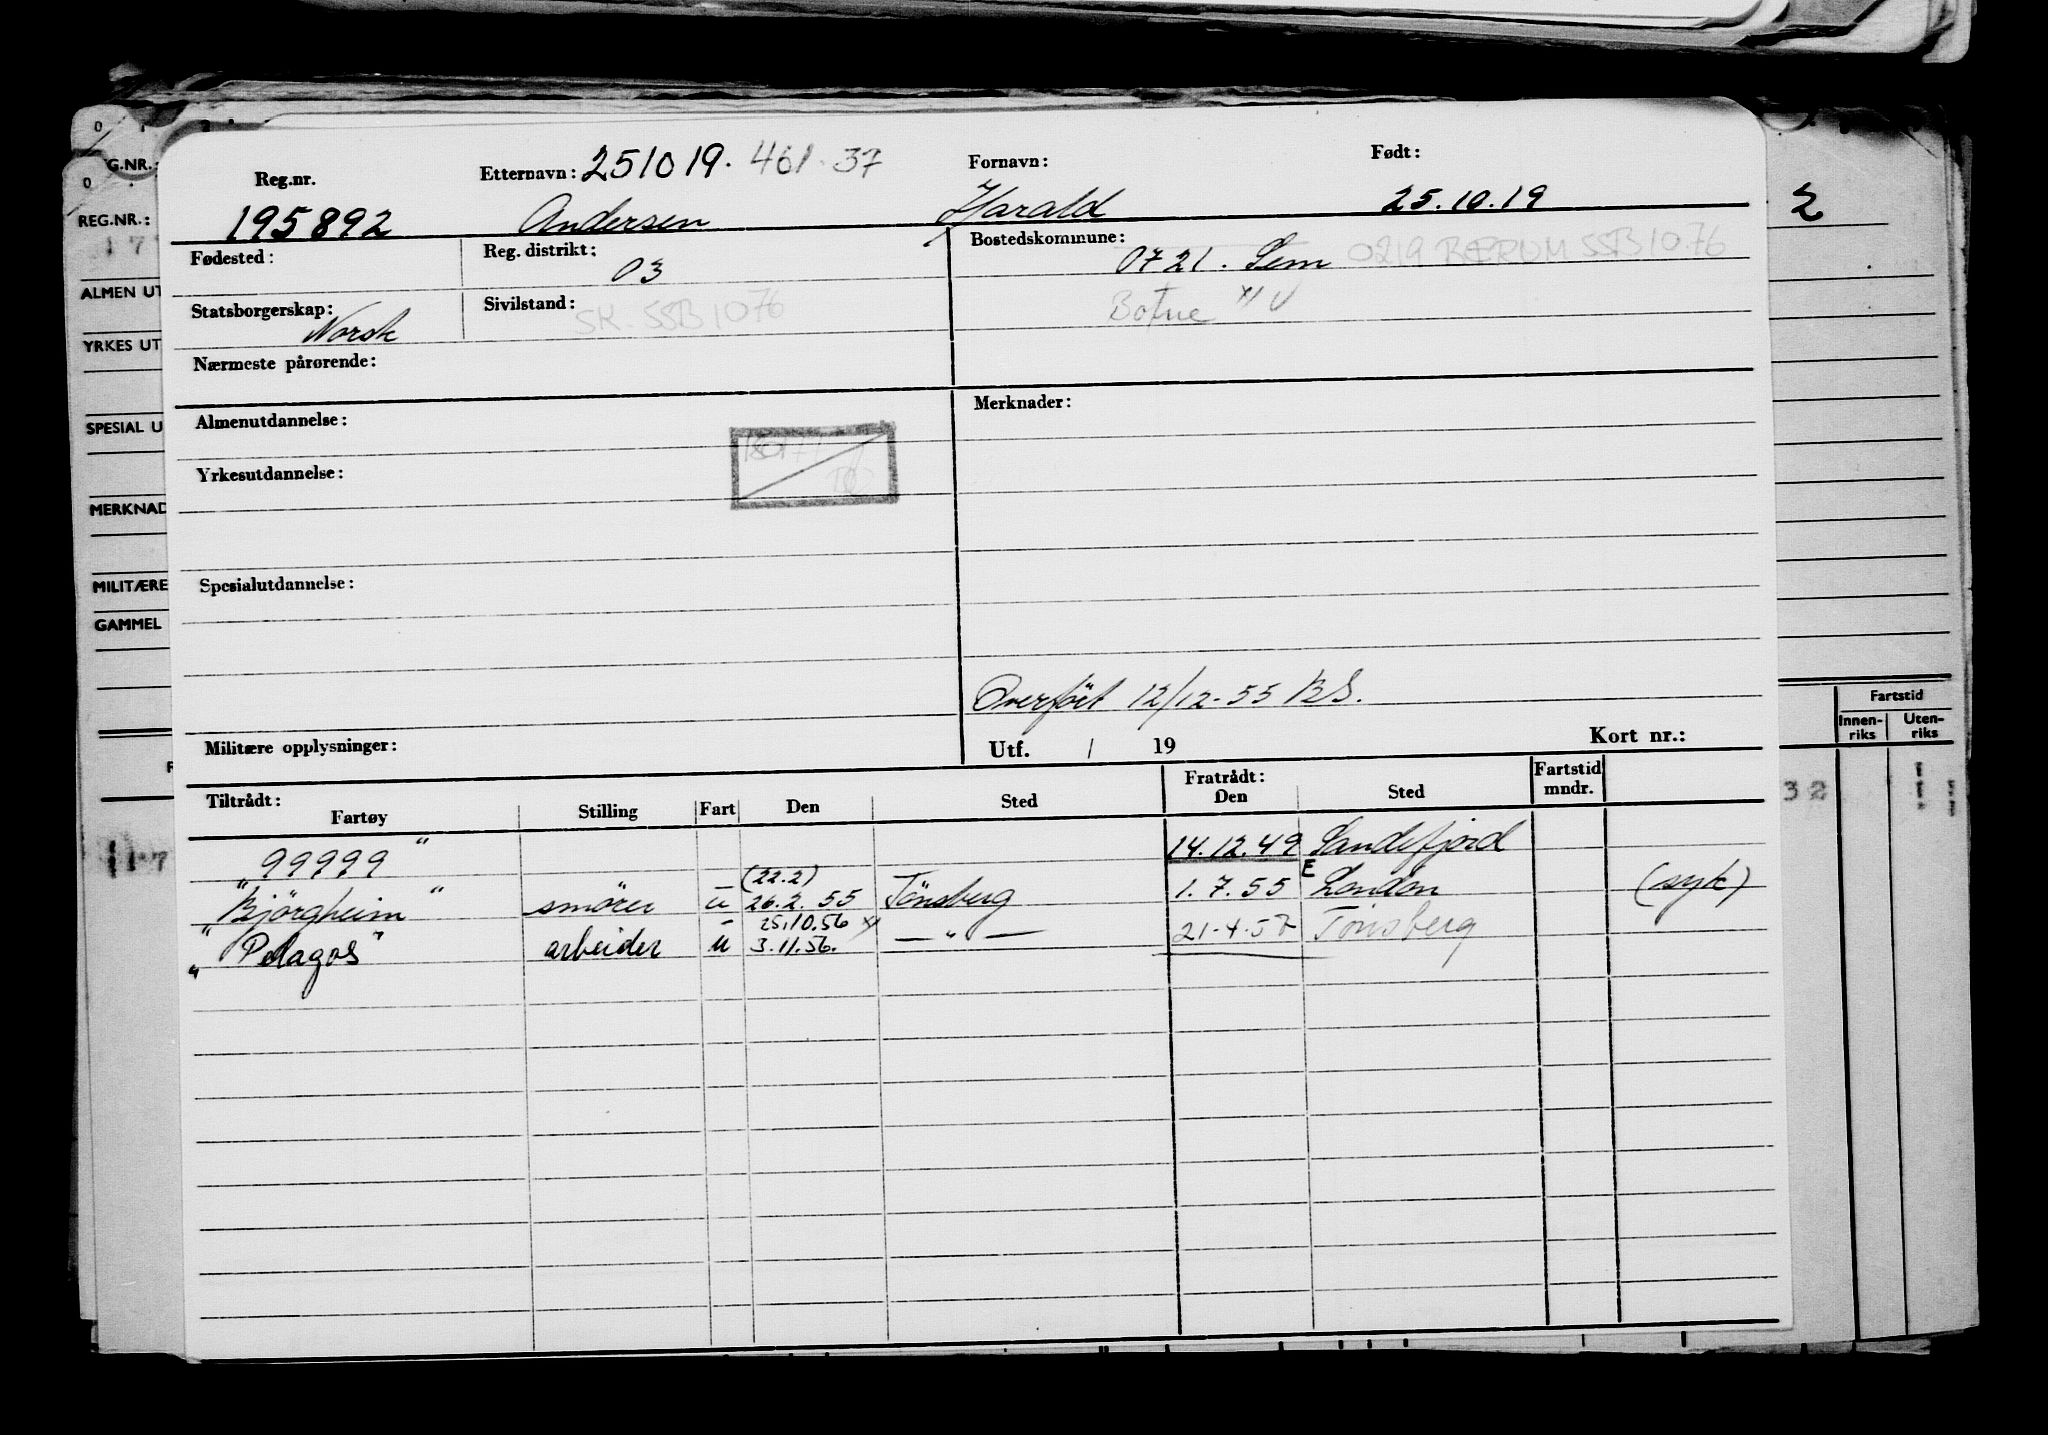 Reg.nr. Etternavn: 251019. 461.37 Fornavn: Født:
195892 Andersen Harald 25.10.19
Fødested: Reg. distrikt: 03 Bostedskommune: 0721. Sem 0219 BÆRUM SSB 10.76
Statsborgerskap: Norsk Sivilstand: SK. SSB 1076 Botne
Nærmeste pårørende:
Almenutdannelse: Merknader:
Yrkesutdannelse:
Spesialutdannelse:
Overført 12/12-55 BS.
Militære opplysninger: Utf. / 19 Kort nr.:
Tiltrådt: Fartøy Stilling Fart Den Sted Fratrådt: Den Sted Fartstid mndr.
"99999" 14.12.49 Sandefjord
(22.2)
"Bjørgheim" smører u 26.2.55 Tønsberg 1.7.55 E London (syk)
25.10.56
"Pelagos" arbeider u 3.11.56. — " — 21.4.57 Tønsberg
G.NR.:
REG.NR.: 2
ALMEN UT
YRKES UT
SPESIAL U
MERKNAD
MILITÆRE
GAMMEL
Fartstid
Innen-riks Uten-riks
32